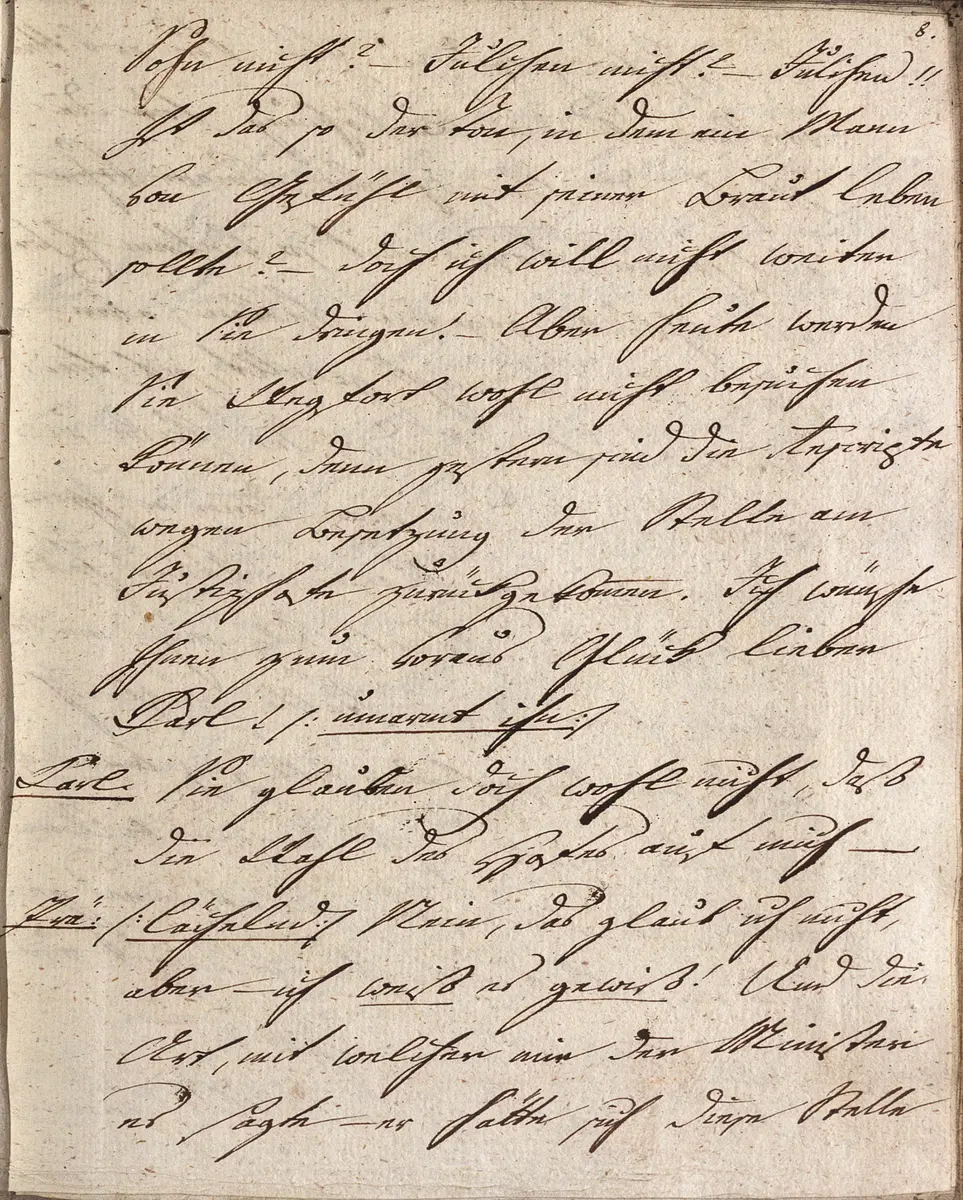 8.
Sohn nicht? – Julchen nicht? – Julchen!!
Ist das so der Ton, in dem ein Mann
von Gefühl mit seiner Braut leben
sollte? – doch ich will nicht weiter
in Sie dringen! – Aber heute werden
Sie wohl nicht besuchen
können, denn gestern sind die Rescripte
wegen Besetzung der Stelle am
Justizhofe zurückgekommen. Ich wünsche
Ihnen zum voraus Glück lieber
Karl! /: umarmt ihn :/
Karl. Sie glauben doch wohl nicht, daß
die Wahl des Hofes auf mich –
Prä: /: lächelnd :/ Nein, das glaub ich nicht,
aber – ich weiß es gewiß! Und die
Art, mit welcher mir der Minister
es sagte – er hätte sich diese Stelle